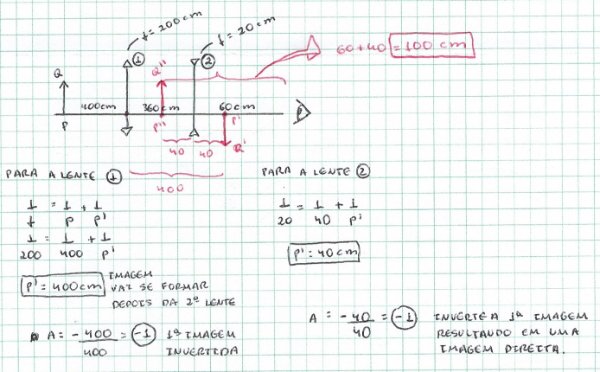 f = 200cm
f = 20cm
① ②
60+40 = 100 cm
Q Q''
400cm 360cm 60cm
P P'' P'
40 40 Q'
400
PARA A LENTE ①
1/f = 1/p + 1/p'
1/200 = 1/400 + 1/p'
p' = 400cm IMAGEM
VAI SE FORMAR
DEPOIS DA 2ª LENTE
A = -400/400 = -1 1ª IMAGEM
INVERTIDA
PARA A LENTE ②
1/20 = 1/40 + 1/p'
p' = 40cm
A = -40/40 = -1 INVERTE A 1ª IMAGEM
RESULTANDO EM UMA
IMAGEM DIREITA.